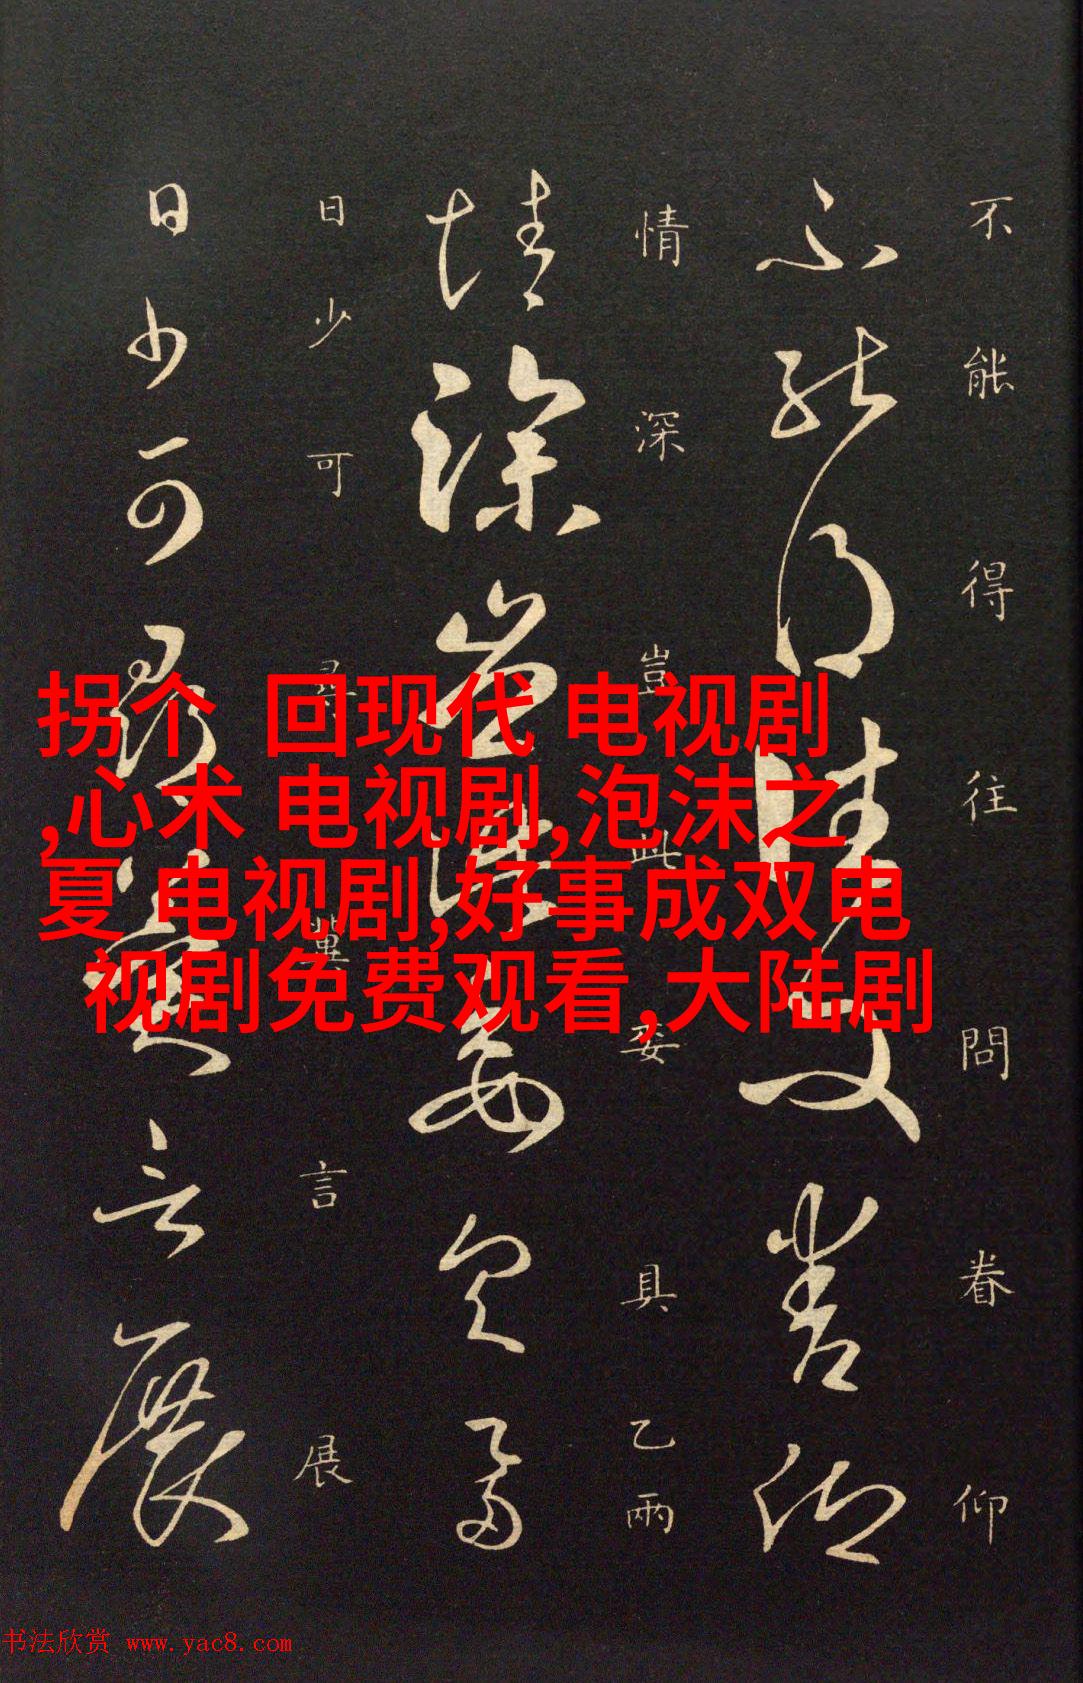 不能得往問眷仰
情深豈此委具乙兩
日少可尋冀言展
拐个 回现代 电视剧
,心术 电视剧,泡沫之
夏 电视剧,好事成双电
视剧免费观看,大陆剧
书法欣赏 www.yac8.com